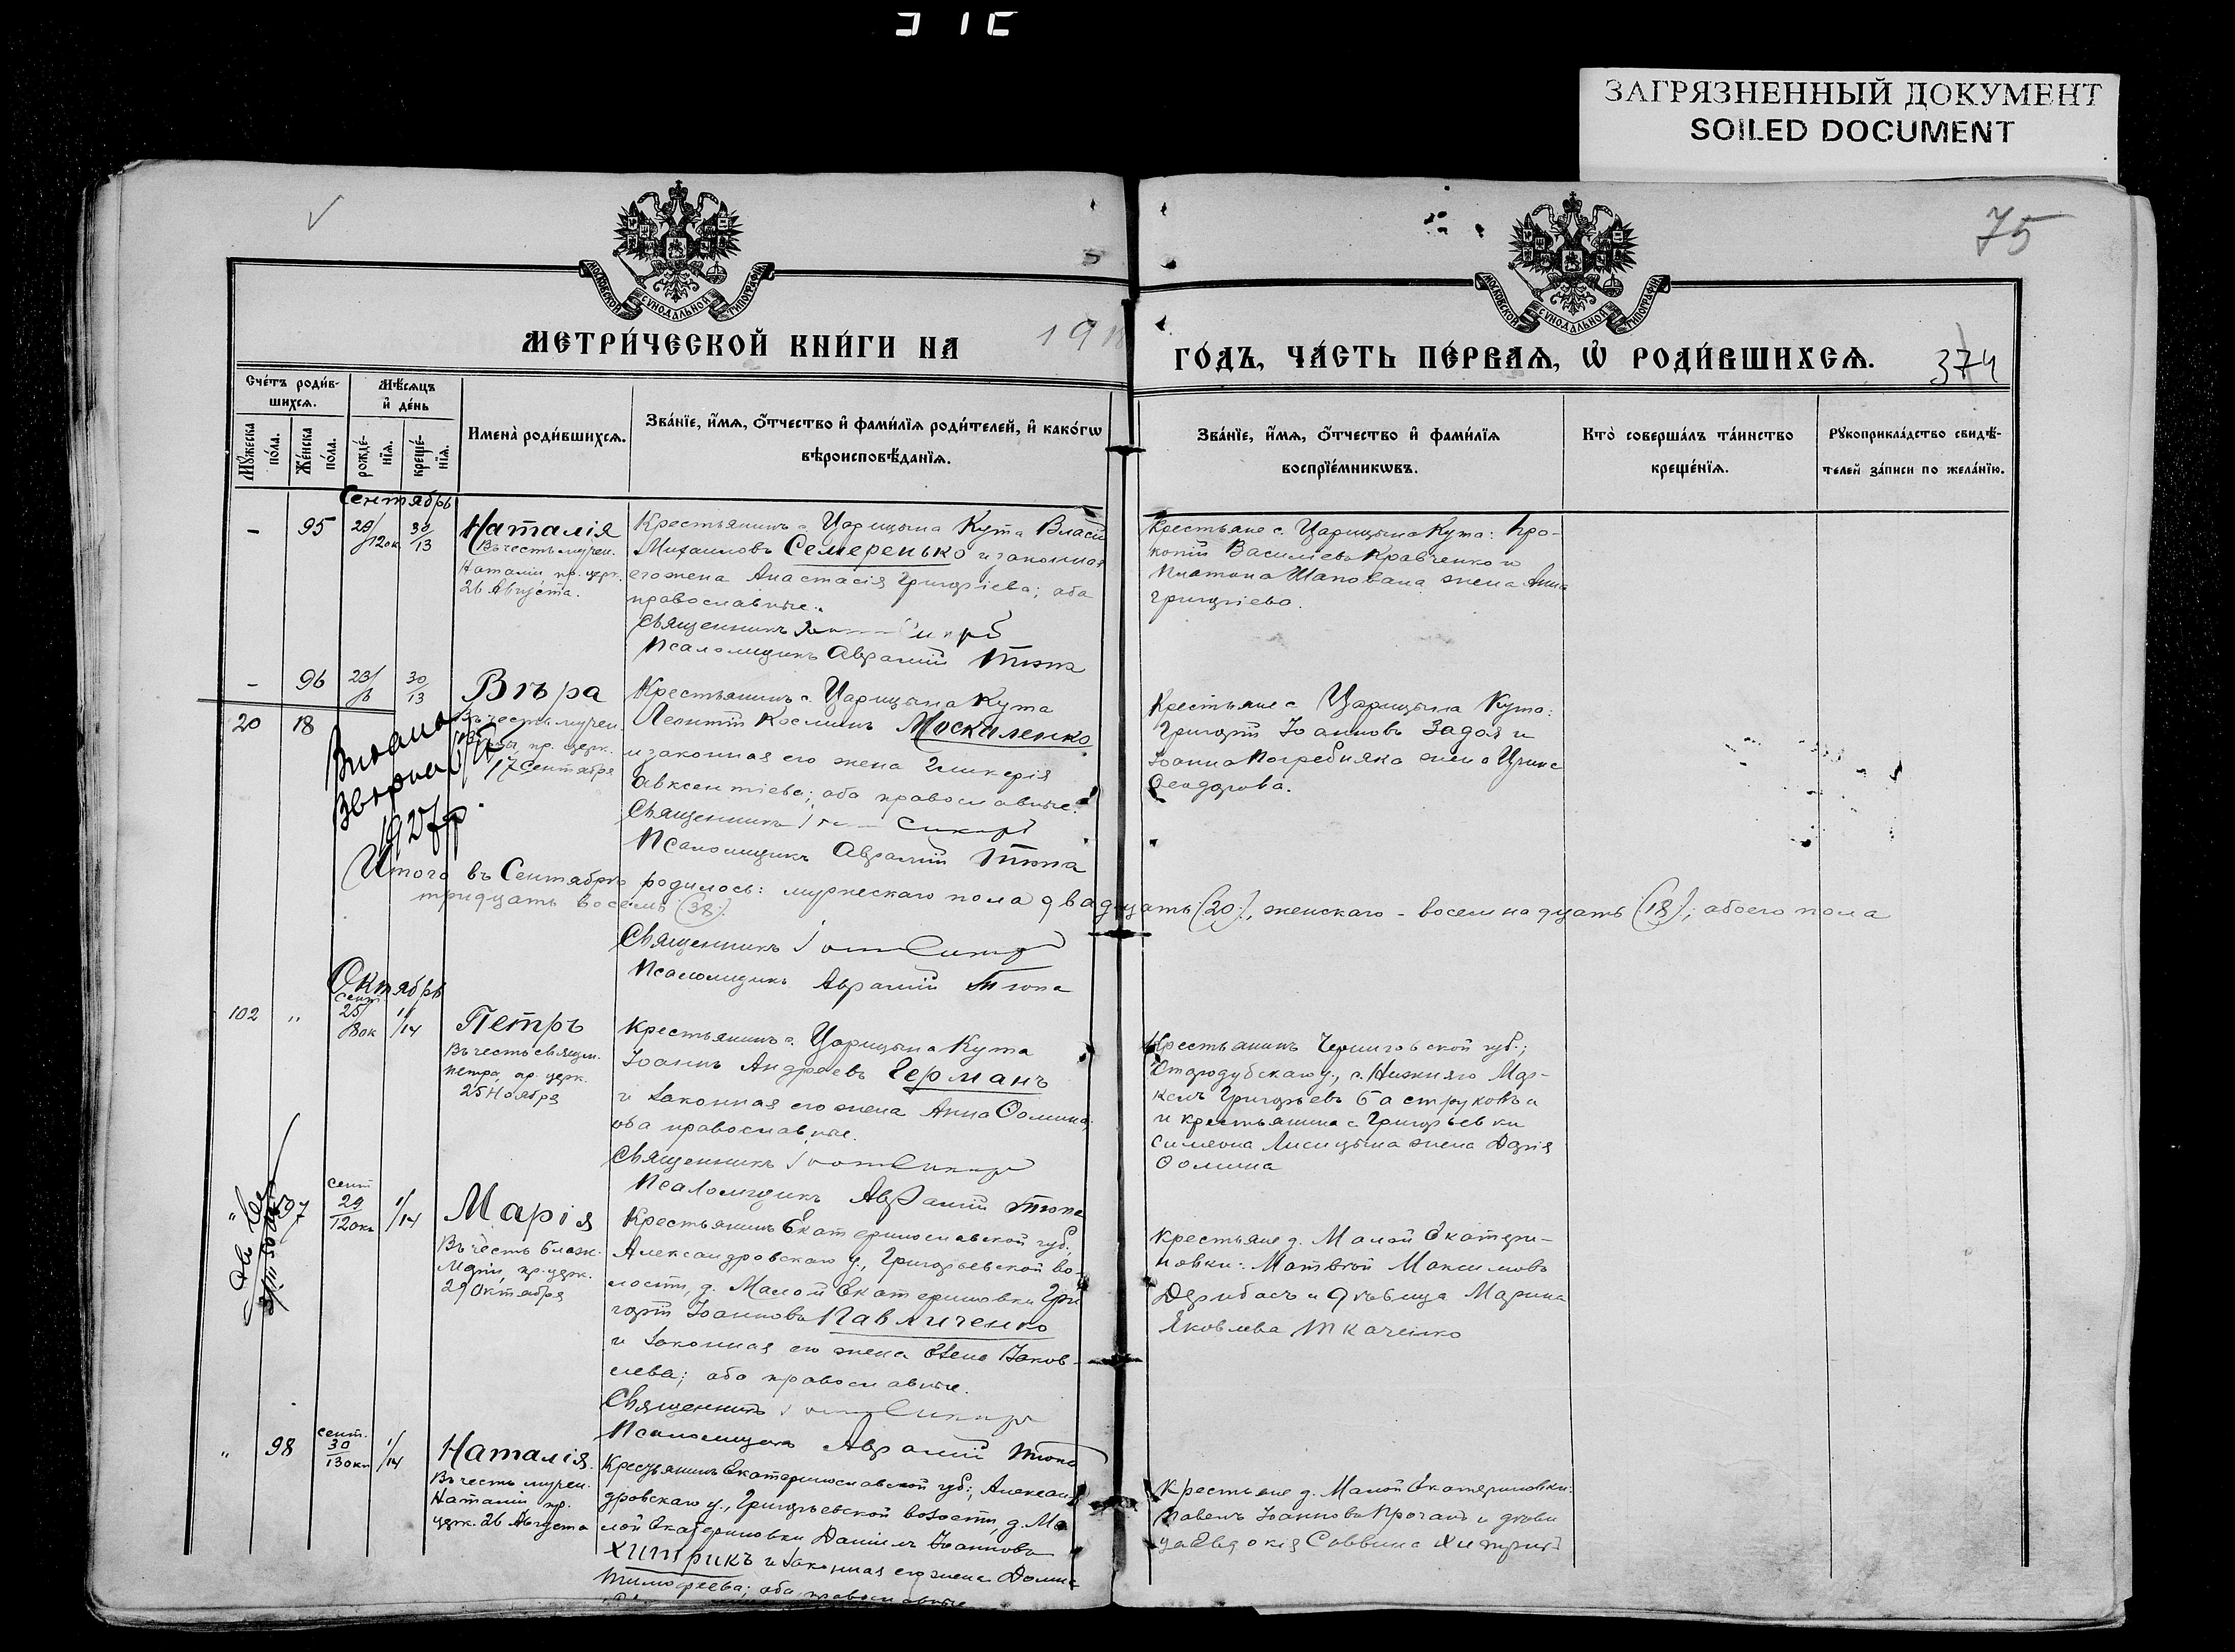 ЗАГРЯЗНЕННЫЙ ДОКУМЕНТ
SOILED DOCUMENT
75
МОСКОВСКОЙ СѴНОДАЛЬНОЙ ТИПОГРАФІИ
МОСКОВСКОЙ СѴНОДАЛЬНОЙ ТИПОГРАФІИ
МЕТРИ́ЧЕСКОЙ КНИ́ГИ НА 191
ГО́ДЪ, ЧА́СТЬ ПЕ́РВАѦ, Ѡ҆ РОДИ́ВШИХСѦ.
374
Сче́тъ роди́в-
шихсѧ.
Мѣ́сѧцъ
и҆ де́нь
Мꙋ́жеска
по́ла.
Же́нска
по́ла.
рожде́-
нїѧ.
креще́-
нїѧ.
Имена̀ роди́вшихсѧ.
Зва́нїе, и҆́мѧ, ѻ҆́тчество и҆ фами́лїѧ роди́телей, и҆ како́гѡ
вѣроисповѣ́данїѧ.
Зва́нїе, и҆́мѧ, ѻ҆́тчество и҆ фами́лїѧ
воспрїе́мникѡвъ.
Кто̀ соверша́лъ та́инство
креще́нїѧ.
Рꙋкоприкла́дство свидѣ́-
телей за́писи по жела́нїю.
Сентябрь
– 95 29/12 ок 30/13
Наталія
Въ честь мучен.
Наталіи пр. церк.
26 Августа.
Крестьянинъ с. Царицына Кута Власій
Михаиловъ Семеренько и законная
его жена Анастасія Григоріева; оба
православные.
Священникъ
Псаломщикъ Аврамій Тюпа
Крестьяне с. Царицына Кута: Про-
копій Василіевъ Кравченко и
Платона Шаповала жена Анна
Григоріева.
– 96 23/6 30/13
Вѣра
Въ честь мучен.
Вѣры, пр. церк.
17 Сентября
Крестьянинъ с. Царицына Кута
Леонтій Косминъ Москаленко
и законная его жена Гликерія
Авксентіева; оба православные.
Священникъ
Псаломщикъ Аврамій Тюпа
Крестьяне с. Царицына Кута:
Григорій Іоанновъ Задоя и
Іоанна Погребняка жена Ирина
Ѳеодорова.
20 18
1927 р.
Итого въ Сентябрѣ родилось: мужескаго пола двадцать (20), женскаго – восемнадцать (18); обоего пола
тридцать восемь (38).
Священникъ
Псаломщикъ Аврамій Тюпа
Октябрь
102 „ Сент 25/8 ок 1/14
Петръ
Въ честь священ.
Петра, пр. церк.
25 Ноября
Крестьянинъ с. Царицына Кута
Іоаннъ Андреевъ Германъ
и законная его жена Анна Ѳомина;
оба православные.
Священникъ
Псаломщикъ Аврамій Тюпа
Крестьянинъ Черниговской губ.;
Стародубскаго у., с. Нижняго Мар-
келъ Григорьевъ
и крестьянина с. Григорьевки
Симеона Лисицына жена Дарія
Ѳомина
„ 97 Сент 29/12 окт 1/14
Марія
Въ честь блаж.
Маріи, пр. церк.
29 Октября
Крестьянинъ Екатеринославской губ.,
Александровскаго у., Григорьевской во-
лости, д. Малой Екатериновки Гри
горій Іоанновъ Павличенко
и законная его жена Елена Іаков-
лева; оба православные.
Священникъ
Псаломщикъ Аврамій Тюпа
Крестьяне д. Малой Екатери-
новки: Матвѣй Максимовъ
Дерибасъ и дѣвица Марина
Яковлева Ткаченко
„ 98 Сент. 30/13 окт 1/14
Наталія.
Въ честь мучен.
Наталіи пр.
церк. 26 Августа
Крестьянинъ Екатеринославской губ., Алексан
дровскаго у., Григорьевской волости, д. Ма
лой Екатериновки Даніилъ Іоанновъ
Хитрикъ и законная его жена Домна
Тимофеева; оба православные
Крестьяне д. Малой Екатериновки:
Павелъ Іоанновъ и дѣви
ца Евдокія Саввина Хитрик